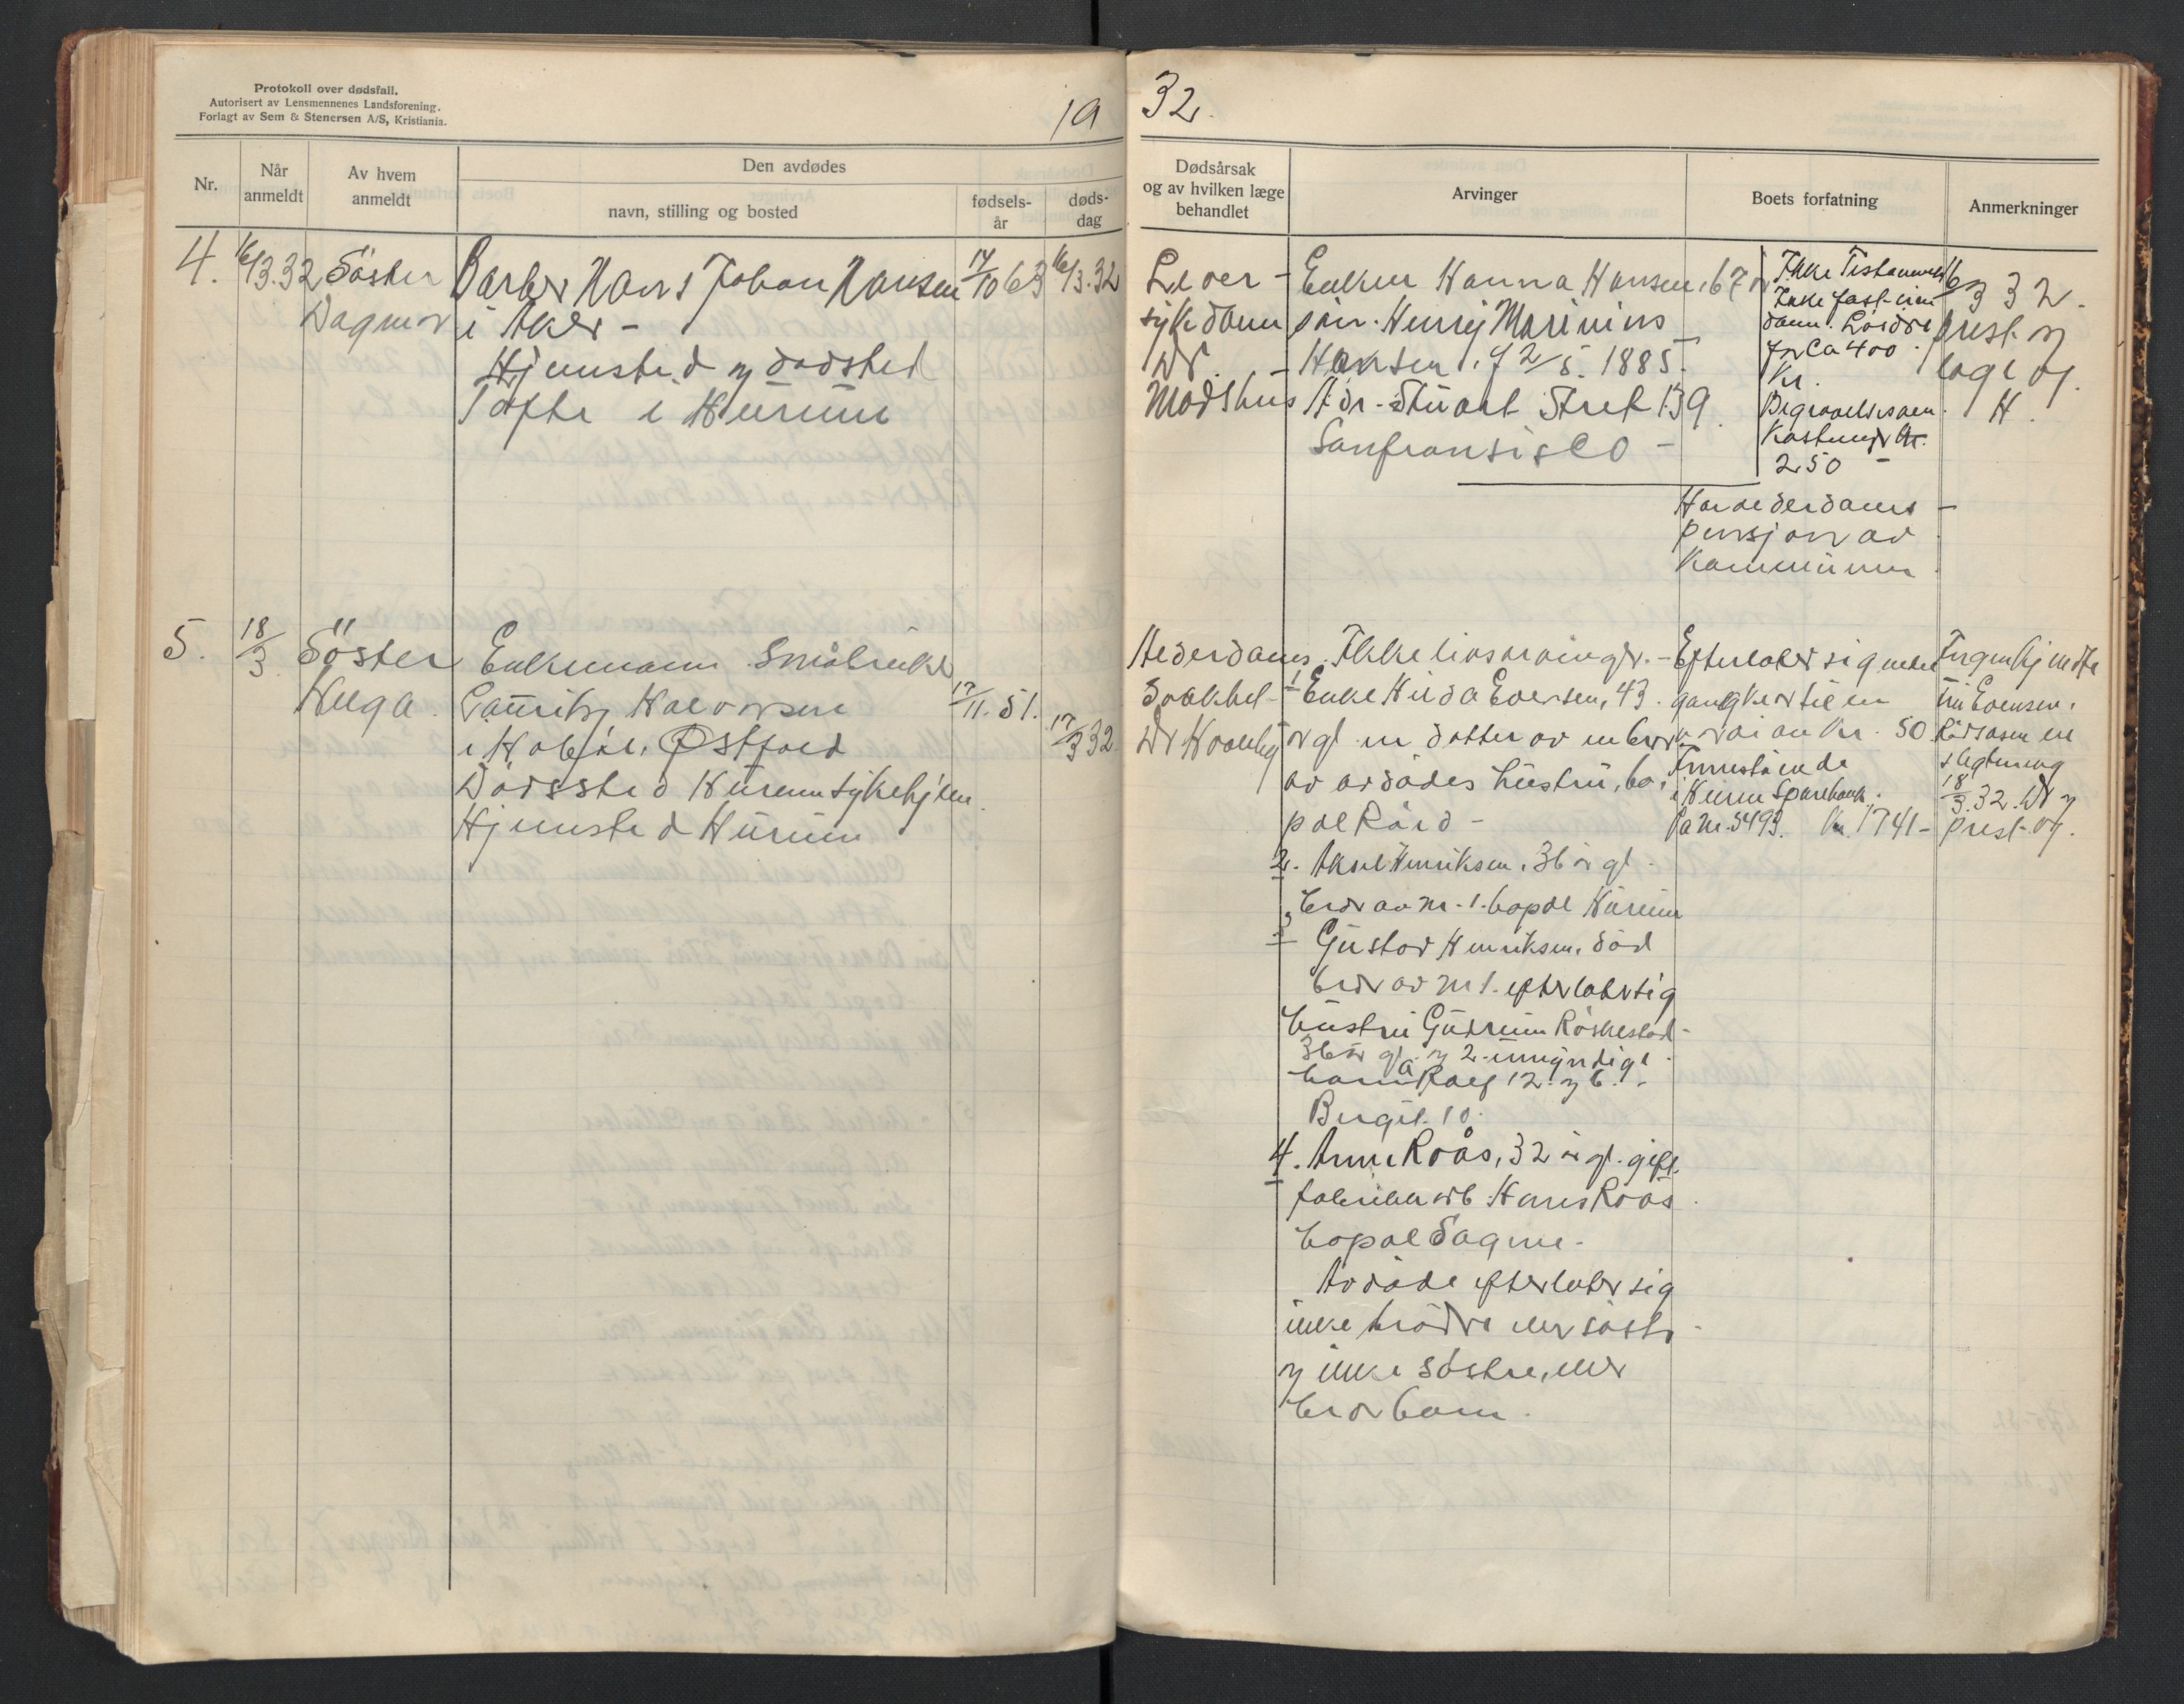 Protokoll over dødsfall.
Autorisert av Lensmennenes Landsforening.
Forlagt av Sem & Stenersen A/S, Kristiania.
19
32.
Nr.
Når
anmeldt
Av hvem
anmeldt
Den avdødes
navn, stilling og bosted
fødsels-
år
døds-
dag
Dødsårsak
og av hvilken læge
behandlet
Arvinger
Boets forfatning
Anmerkninger
4.
16/3.32
Söster
Dagmar
Barber Hans Johan Hansen
i Aker -
Hjemsted og dödsted
Tofte i Hurum
14/10 63
16/3.32
Lever-
sykdom
Dr.
Modshus
Enken Hanna Hansen, 67 år
sön. Henry Marinius
Hansen. f 2/5. 1885.
Adr. Stuart Stret 139.
Sanfransisco -
Ikke Testament
Ikke fast-eien
dom. Lösöre
for Ca 400
Kr.
Begravelsesom
kostninger kr.
250 -
Hadde alderdoms-
pensjon av
Kommunen
16/3 32.
prest og
lage og.
H.
5.
18/3
Söster
Helga
Enkemann Småbruker
Lauritz Halvorsen
i Hobøl. Østfold
Dödssted Hurum Sykehjem.
Hjemsted Hurum
17/11. 51.
17/3 32
Alderdoms
svakhet
Dr
Ikke livsarvinger. -
1 Enke Hilda Evensen, 43
år gl en datter av en bror
av avdödes hustru, bo-
pæl Råed -
2. Aksel Henriksen, 36 år gl.
bror av nr. 1. bopæl Hurum
3 Gustav Henriksen. död
bror av nr 1. efterlater sig
hustru Gudrun Röskestad-
36 år gl. og 2 umyndige
barn a Rolf 12. og b.
Birgit. 10.
4. Anna Roås, 32 år gl. gift.
fabrikarb. Hans Roås
bopæl Sagene.
Avdöde efterlater sig
ikke brödre eller söstre
og ikke söstre, eller
brorbarn.
Efterlater sig endel
gangklær til en
verdi av kr. 50
Innestående
i Hurum Sparebank.
på nr. 5493. Kr. 1741-
Ingen kjendte
til Evensen.
Rådsom en
slegtning
18/3.32. Dr og
prest. og.